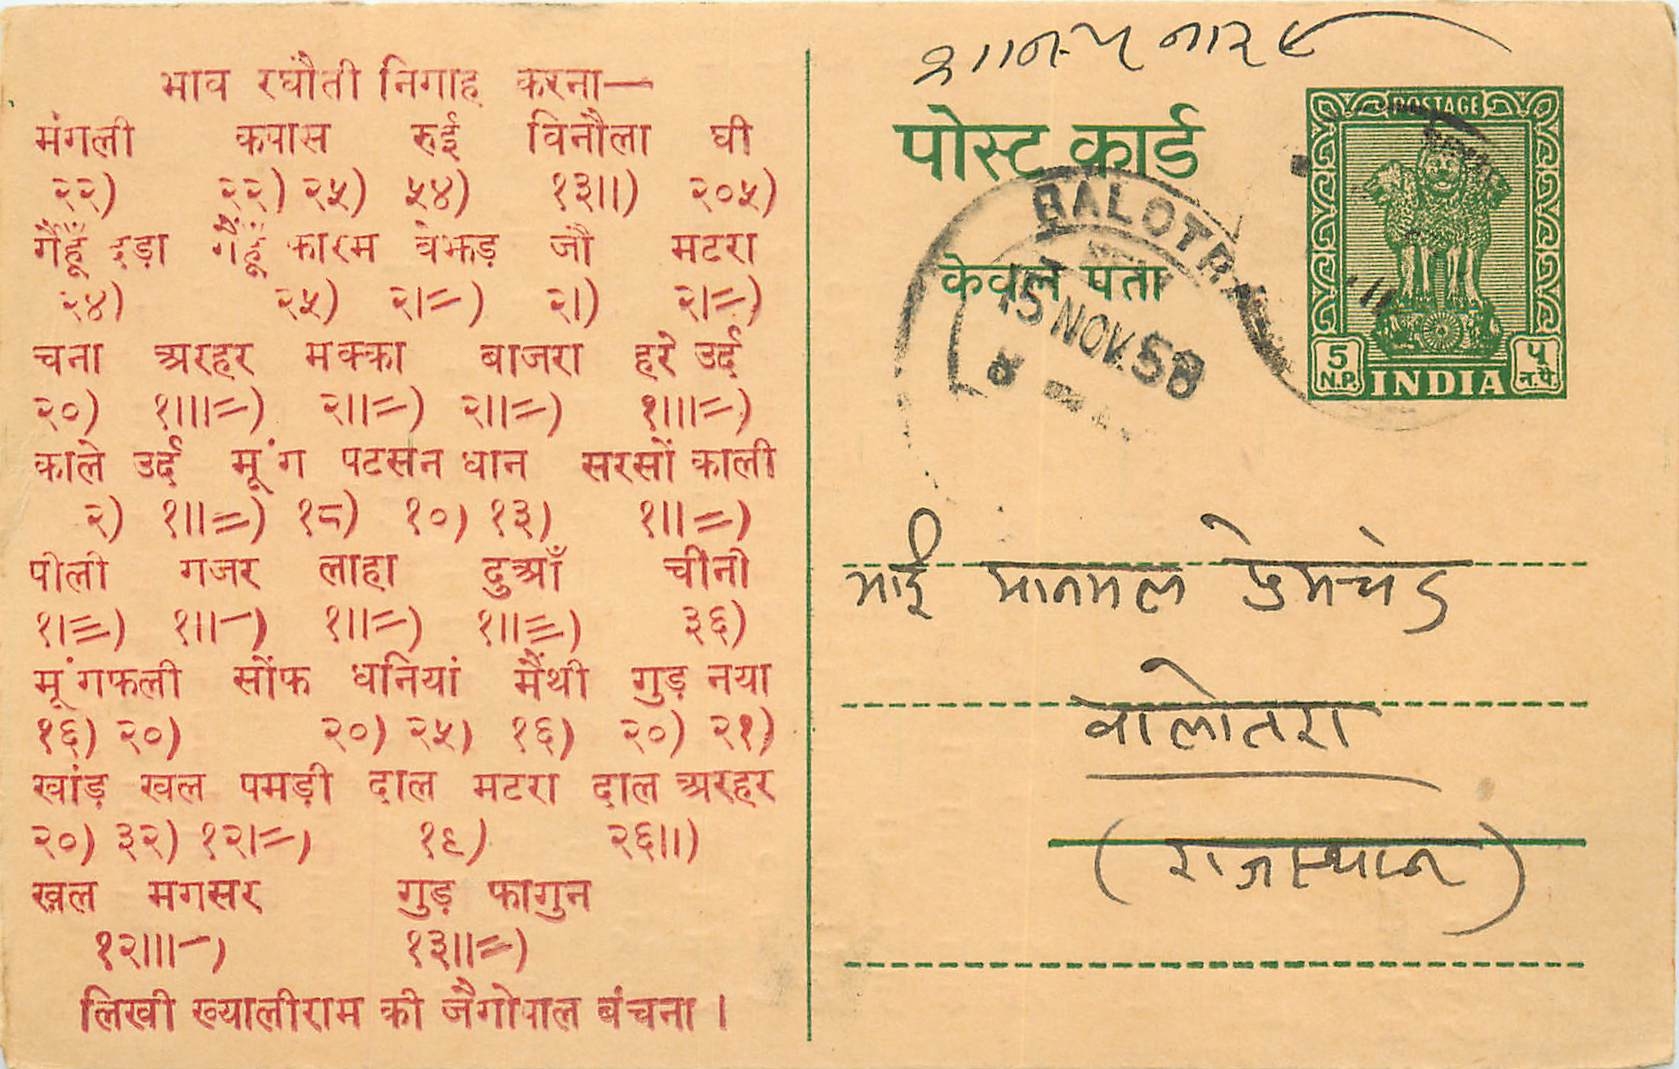 भाव रघौती निगाह करना—
मंगली कपास रुई विनौला घी
२२) २२) २५) ५४) १३॥) २०५)
गैहूँ दड़ा गैहूँ फारम बेझड़ जौ मटरा
२४) २५) २।=) २।) २।=)
चना अरहर मक्का बाजरा हरे उर्द
२०) १॥।=) २॥=) २॥=) १॥।=)
काले उर्द मूंग पटसन धान सरसों काली
२) १॥=) १८) १०) १३) १॥=)
पीली गजर लाहा दुआँ चीनी
१।≡) १॥-) १॥=) १॥≡) ३६)
मूंगफली सोंफ धनियां मैंथी गुड़ नया
१६) २०) २०) २५) १६) २०) २१)
खांड़ खल पमड़ी दाल मटरा दाल अरहर
२०) ३२) १२।=) १९) २६॥)
खल मगसर गुड़ फागुन
१२॥।-) १३॥=)
लिखी ख्यालीराम की जैगोपाल बंचना ।
पोस्ट कार्ड
केवल पता
POSTAGE
5 N.P. INDIA ५ न.पै.
BALOTRA
15 NOV. 58
भाई मानमल प्रेमचंद
बालोतरा
(राजस्थान)